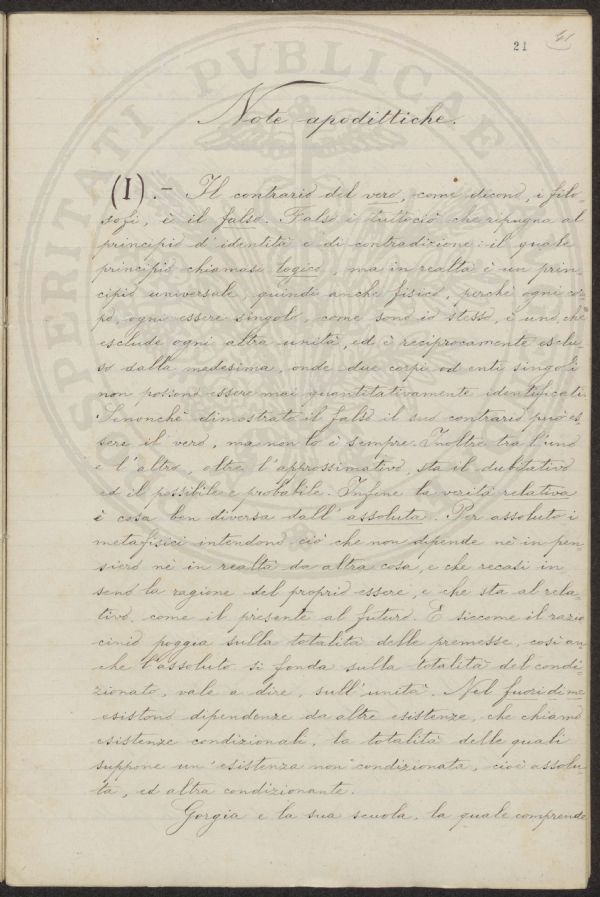 21
41
Note apodittiche.
(I). – Il contrario del vero, come dicono, i filo-
sofi, è il falso. Falso è tuttociò che ripugna al
principio d'identità e di contradizione: il quale
principio chiamasi logico, ma in realtà è un prin-
cipio universale, quindi anche fisico, perchè ogni cor-
po, ogni essere singolo, come sono io stesso, è uno, che
esclude ogni altra unità, ed è reciprocamente esclu-
so dalla medesima, onde due corpi od enti singoli
non possono essere mai quantitativamente identificati.
Senonchè dimostrato il falso il suo contrario può es-
sere il vero, ma non lo è sempre. Inoltre tra l'uno
e l'altro, oltre l'approssimativo, sta il dubitativo
ed il possibile e probabile. Infine la verità relativa
è cosa ben diversa dall'assoluta. Per assoluto i
metafisici intendono ciò che non dipende nè in pen-
siero nè in realtà da altra cosa, e che recasi in
seno la ragione del proprio essere, e che sta al rela-
tivo, come il presente al futuro. E siccome il razio-
cinio poggia sulla totalità delle premesse, così an-
che l'assoluto si fonda sulla totalità del condi-
zionato, vale a dire, sull'unità. Nel fuori di me
esistono dipendenze da altre esistenze, che chiamo
esistenze condizionali, la totalità delle quali
suppone un'esistenza non condizionata, cioè assolu-
ta, ed altra condizionante.
Gorgia e la sua scuola, la quale comprende
PVBLICAE